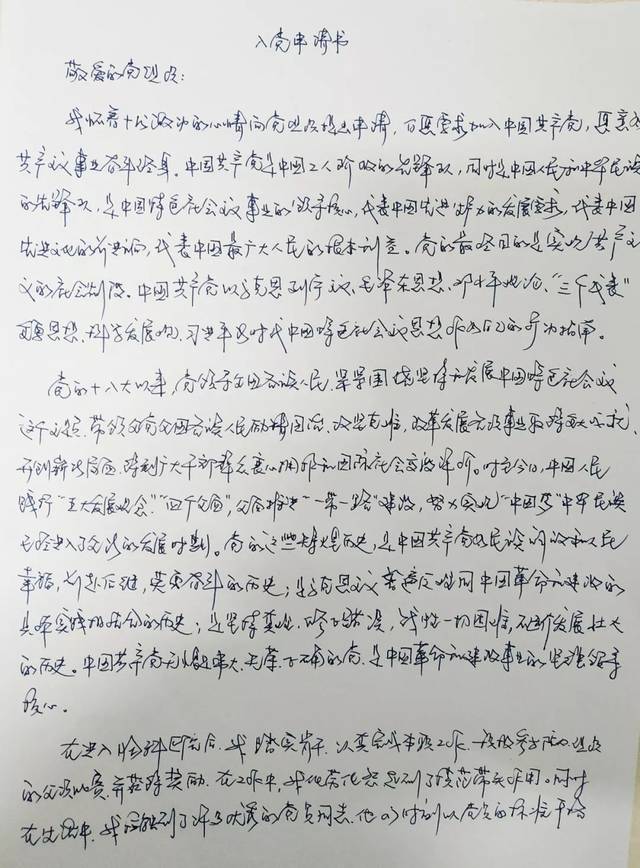 入党申请书
敬爱的党组织：
我怀着十分激动的心情向党组织提出申请，自愿要求加入中国共产党，愿意为
共产主义事业奋斗终身。中国共产党是中国工人阶级的先锋队，同时是中国人民和中华民族
的先锋队，是中国特色社会主义事业的领导核心，代表中国先进生产力的发展要求，代表中国
先进文化的前进方向，代表中国最广大人民的根本利益。党的最终目的是实现共产主
义的社会制度。中国共产党以马克思列宁主义、毛泽东思想、邓小平理论、“三个代表”
重要思想、科学发展观、习近平新时代中国特色社会主义思想作为自己的行为指南。
党的十八大以来，党领导全国各族人民，紧紧围绕坚持和发展中国特色社会主义
这个主题，带领全党全国各族人民励精图治、攻坚克难，改革发展各项事业取得重大成就，
开创新的局面，得到广大干部群众衷心拥护和国际社会高度评价。时至今日，中国人民
践行“五大发展理念”、“四个全面”，全面推进“一带一路”建设，努力实现“中国梦”中华民族
已经进入了全新的发展时期。党的这些辉煌历史，是中国共产党为民族解放和人民
幸福，前赴后继，英勇奋斗的历史；是马克思主义普遍原理同中国革命和建设的
具体实践相结合的历史；是坚持真理，修正错误，战胜一切困难，不断发展壮大
的历史。中国共产党无愧是伟大、光荣、正确的党，是中国革命和建设事业的坚强领导
核心。
在进入 医院后，我踏实肯干，以 工作，积极参加 组织
的 比赛，并获得奖励。在工作中，我 起到了模范带头作用。同时
在 中，我接触到了许多优秀的党员同志，他们时刻以党员的标准严格